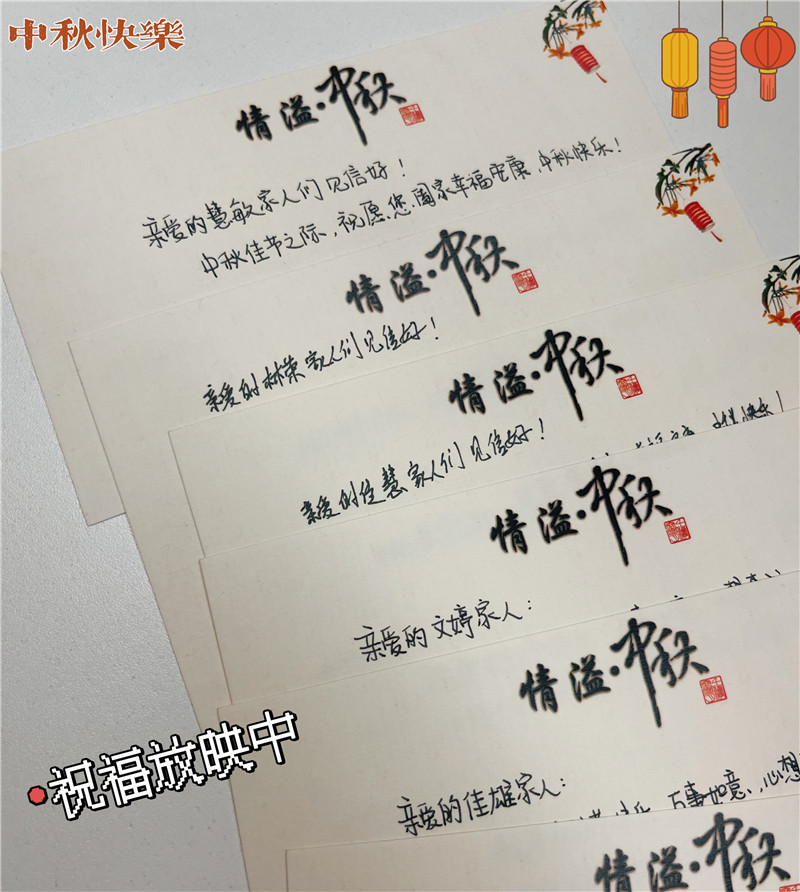 中秋快樂
情溢·中秋
亲爱的慧敏家人们见信好！
中秋佳节之际，祝愿您阖家幸福安康，中秋快乐！
情溢·中秋
亲爱的林荣家人们见信好！
情溢·中秋
亲爱的佳慧家人们见信好！
快乐！
情溢·中秋
亲爱的文婷家人：
情溢·中秋
亲爱的佳雄家人：
万事如意、心想
情溢·中秋
祝福放映中